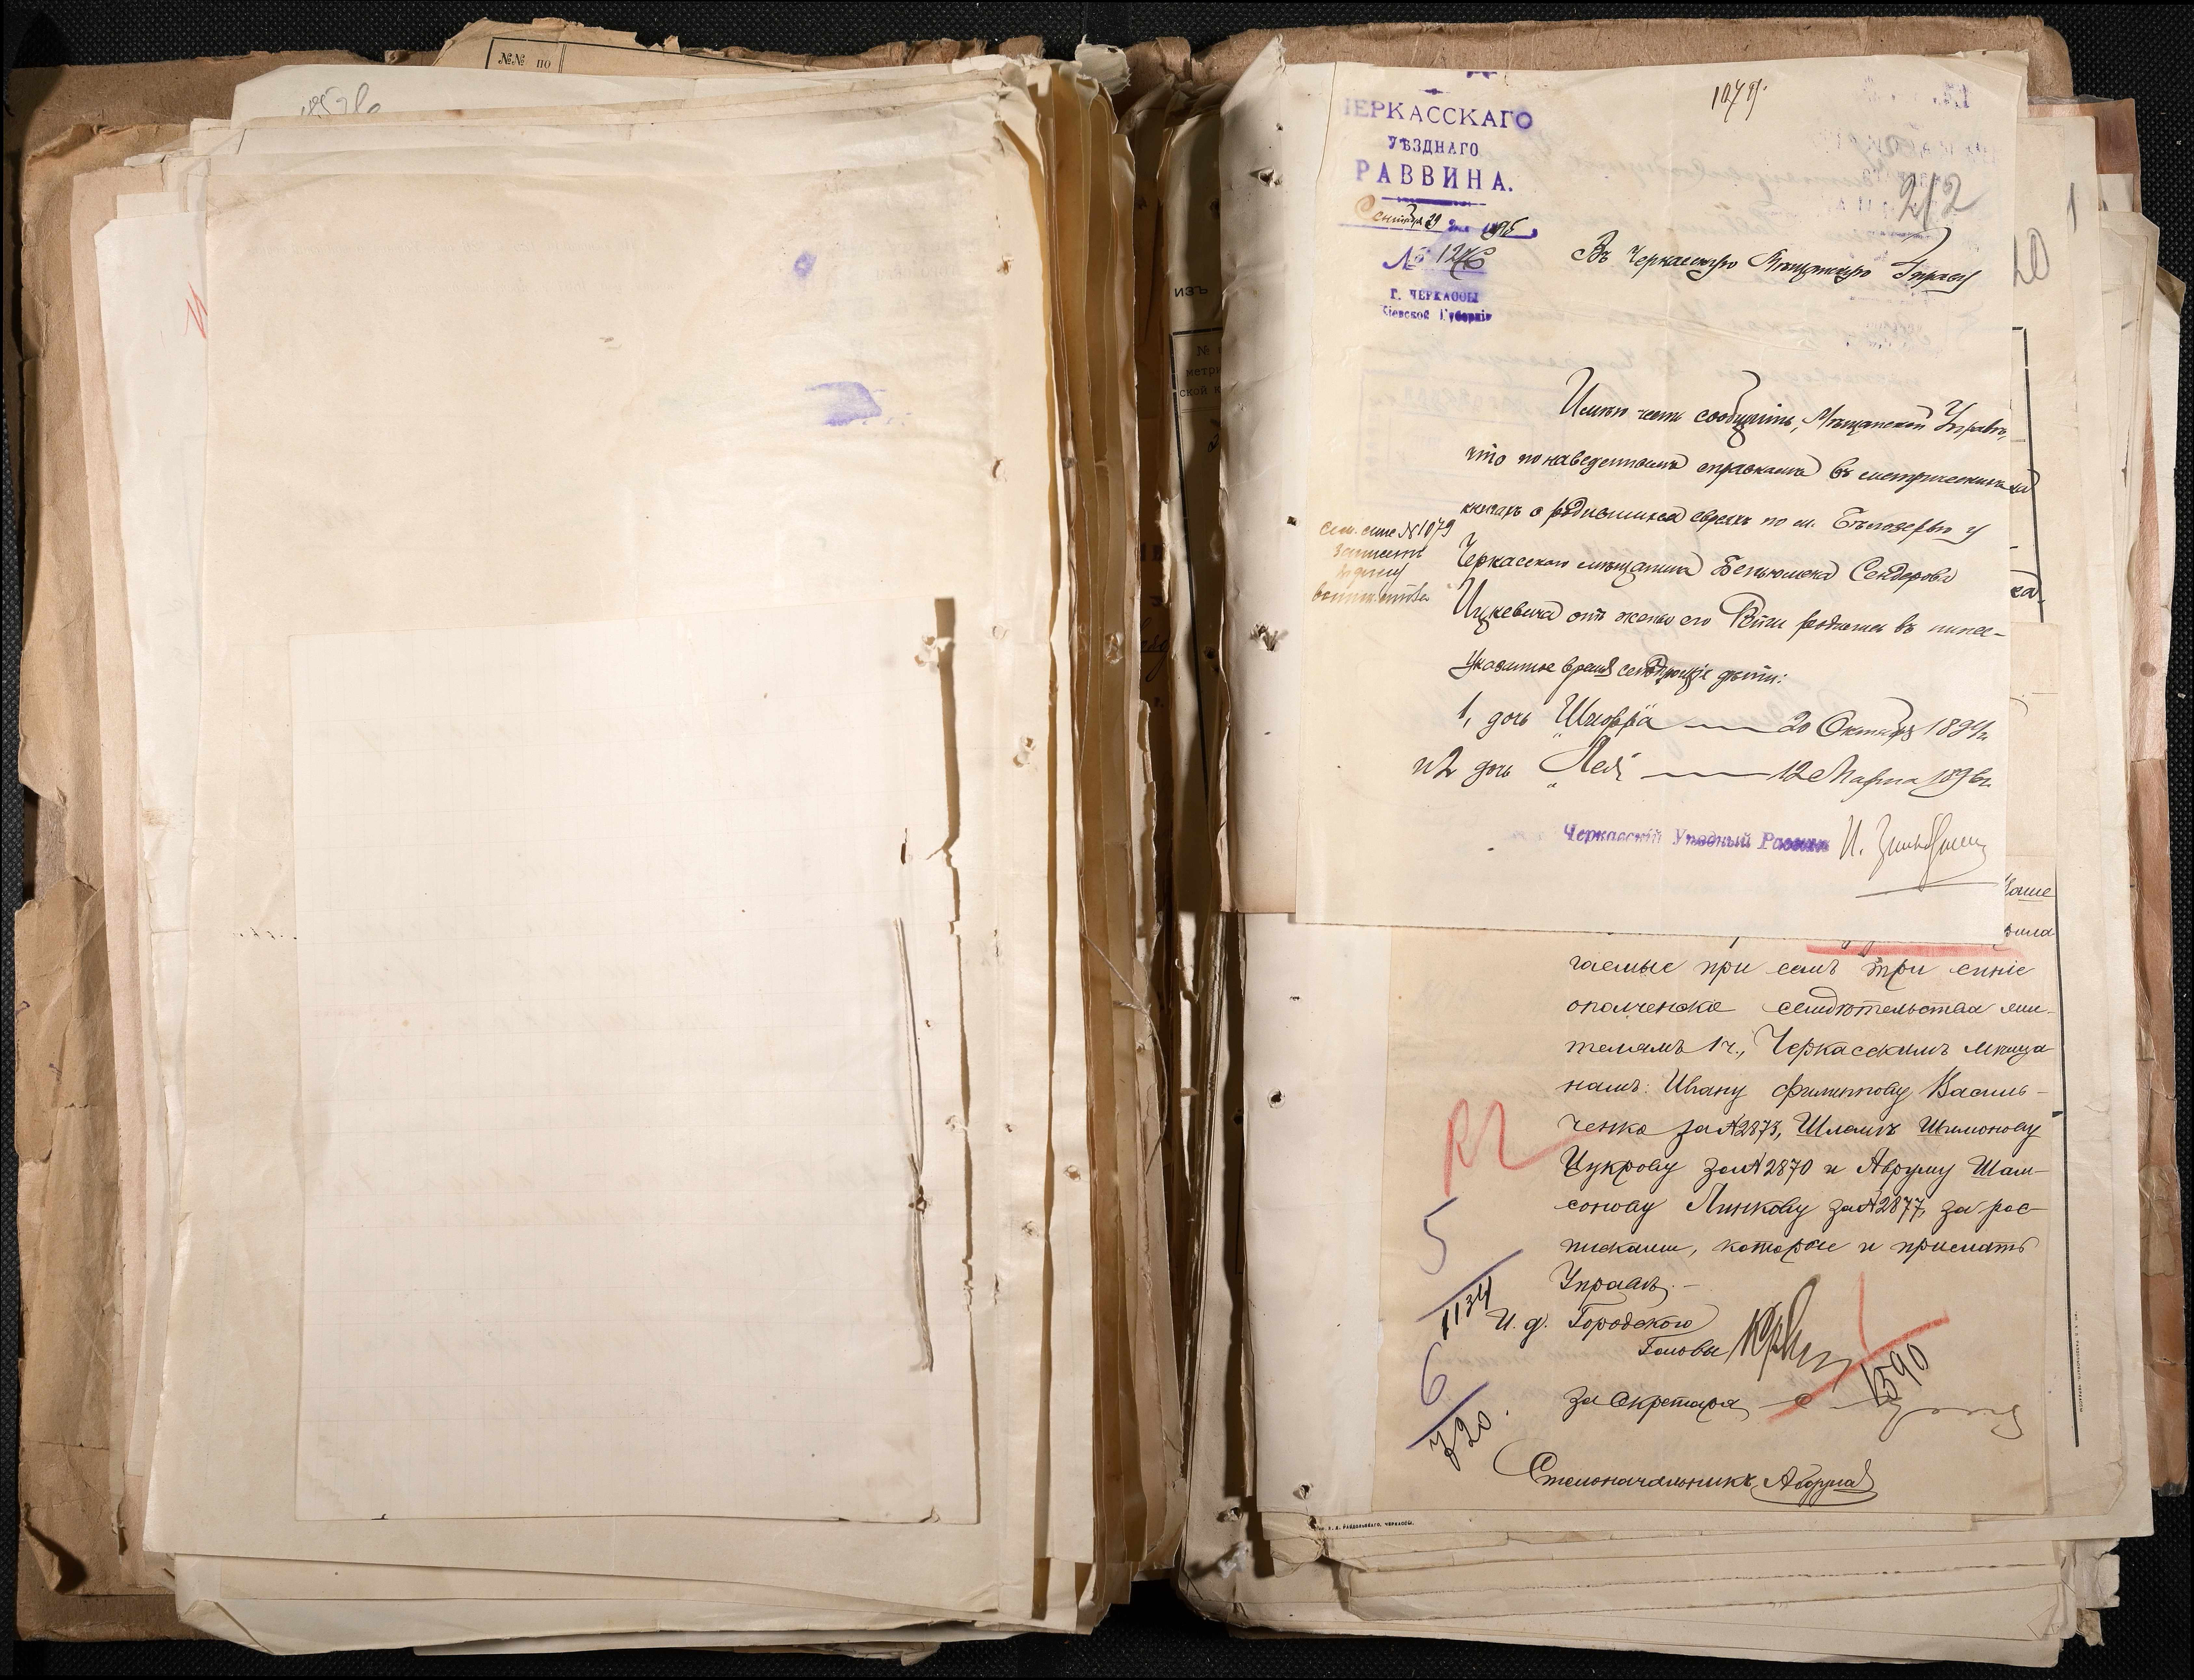 №№ по
ЧЕРКАССКАГО
УѢЗДНАГО
РАВВИНА.
Сентября 29 дня 1896
№ 1246
Г. ЧЕРКАССЫ
Кіевской Губерніи
1079
212
Въ Черкасскую Мѣщанскую Управу
20
1
изъ
№
метри
ской к
Имѣю честь сообщить, Мѣщанской Управѣ,
что по наведеннымъ справкамъ въ метрическихъ
книгахъ о родившихся евреяхъ по м. Бѣлозерью у
Черкасскаго мѣщанина Беньюмена Сендерова
Цукевича отъ жены его родились въ ниже-
указанное время слѣдующіе дѣти:
1, дочь Шифра — 20 Октября 1894 г.
и 2 дочь Лея — 12 Марта 1896 г.
Сем. спис № 1079
Черкасскій Уѣздный Раввинъ И.
гаемые при семъ три синіе
ополченскіе свидѣтельства жи-
телямъ 1 ч., Черкасскимъ мѣща
намъ: Ивану Филиппову Василь-
ченко за № 2873, Шламѣ Шимонову
Цукрову за № 2870 и Авруму Шам-
сонову Линкову за № 2877, за рос-
писками, которые и прислать
Управѣ. —
И. д. Городского
Головы
За Секретаря
Столоначальникъ
5
1134
6
720
1590